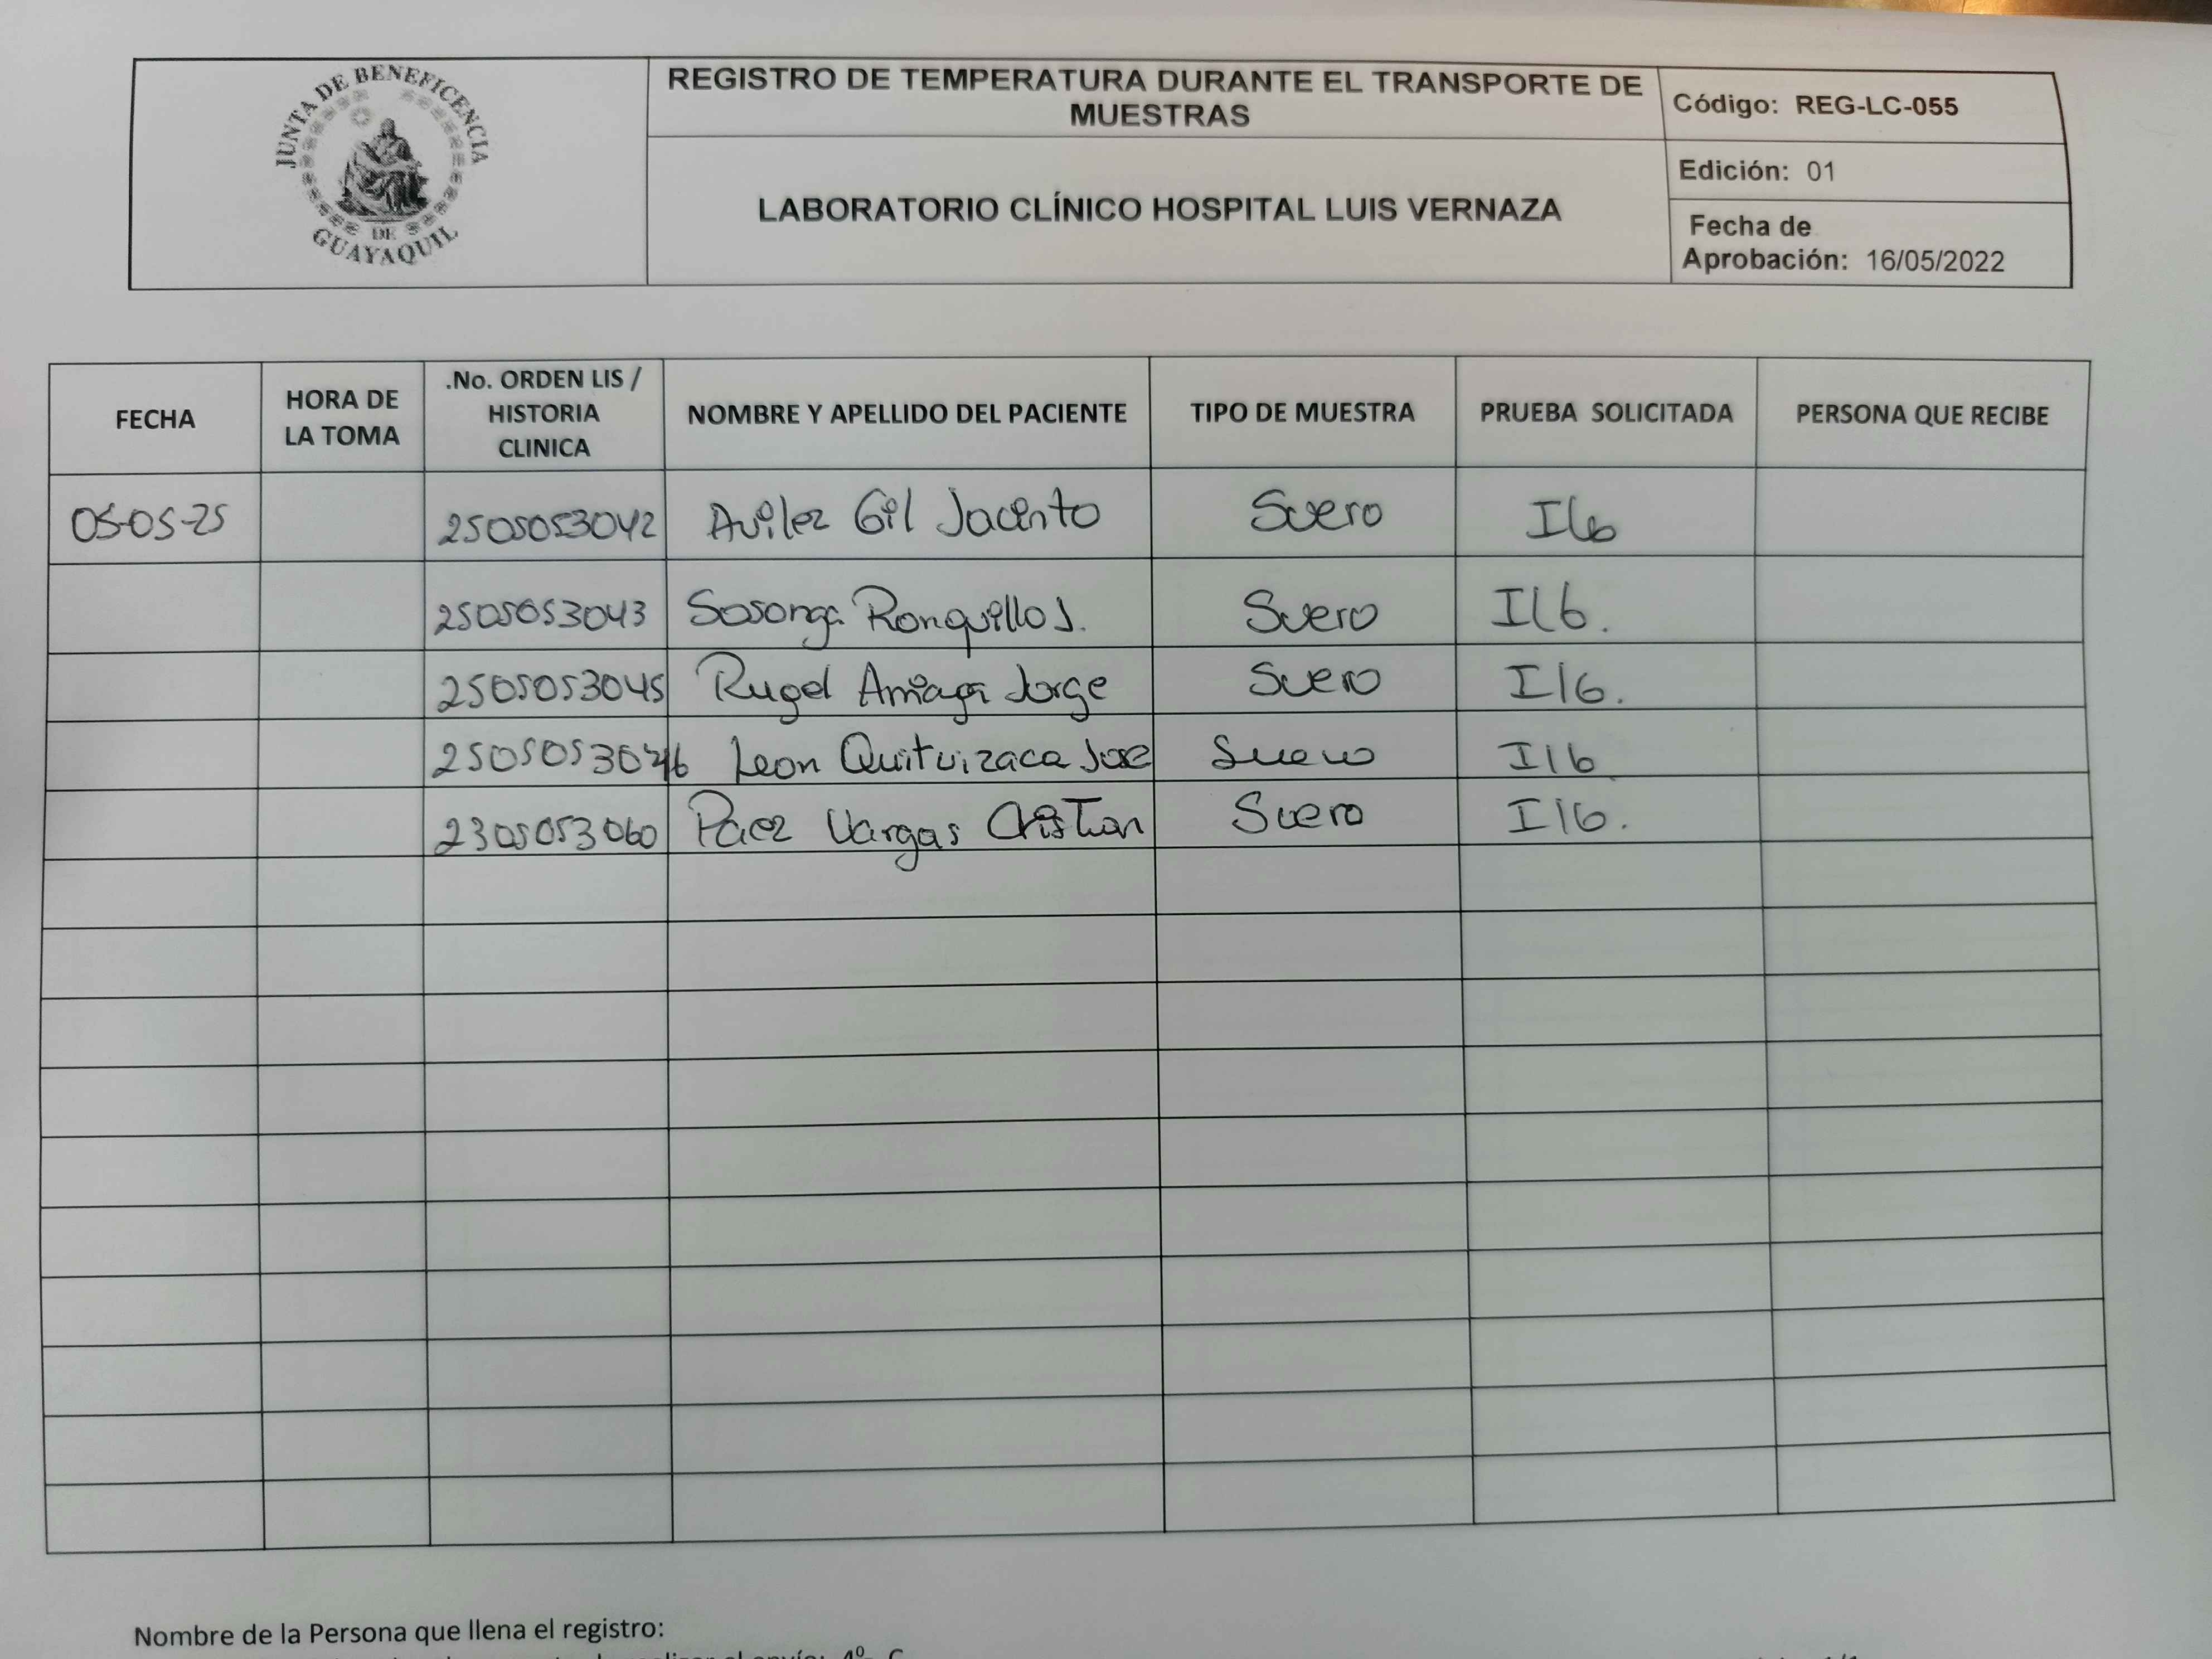 JUNTA DE BENEFICENCIA
DE
GUAYAQUIL
REGISTRO DE TEMPERATURA DURANTE EL TRANSPORTE DE
MUESTRAS
LABORATORIO CLÍNICO HOSPITAL LUIS VERNAZA
Código: REG-LC-055
Edición: 01
Fecha de
Aprobación: 16/05/2022
FECHA
HORA DE
LA TOMA
.No. ORDEN LIS /
HISTORIA
CLINICA
NOMBRE Y APELLIDO DEL PACIENTE
TIPO DE MUESTRA
PRUEBA SOLICITADA
PERSONA QUE RECIBE
05-05-25 2505053042 Avilez Gil Jacinto Suero Il6
2505053043 Ronquillo J. Suero Il6.
2505053045 Rugel Arriaga Jorge Suero Il6.
Leon Quituizaca Jose Suero Il6
2305053060 Paez Vargas Cristian Suero Il6.
Nombre de la Persona que llena el registro:
realizar el envío: 4º C